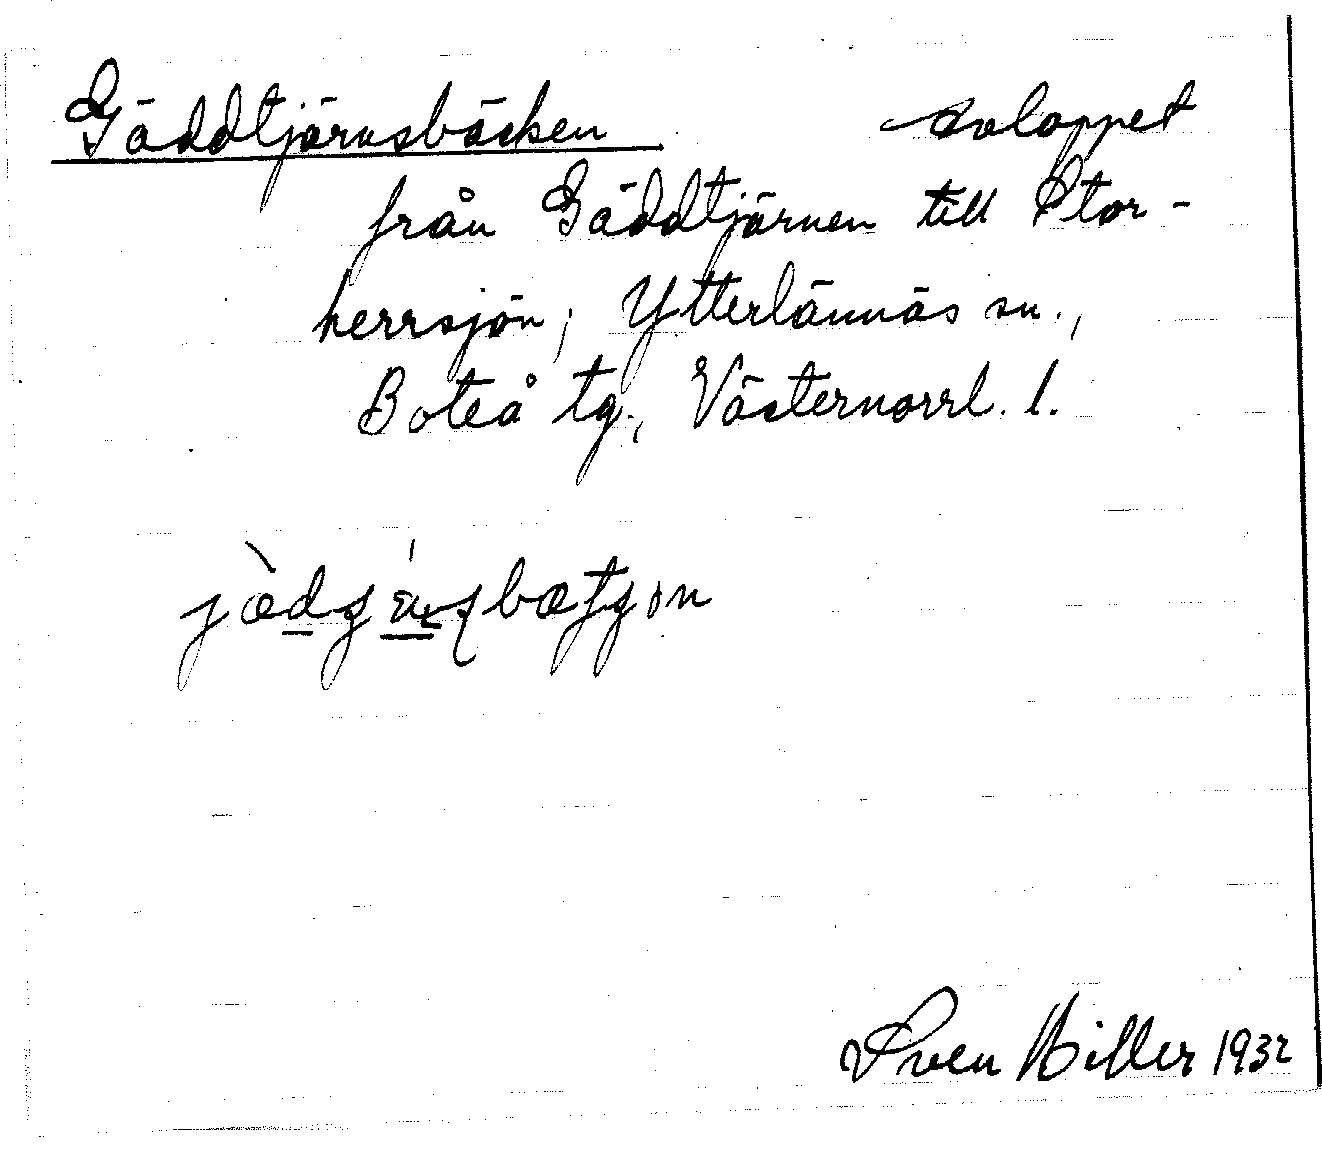 Gäddtjärnsbäcken avloppet
från Gäddtjärnen till Stor-
herrsjön; Ytterlännäs sn.,
Boteå tg., Västernorrl. l.
Sven Hiller 1932